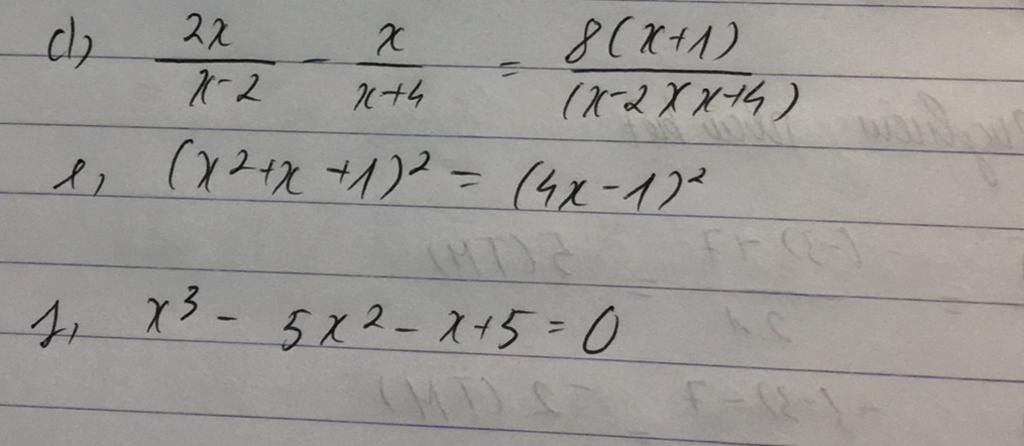 d, 2x/(x-2) - x/(x+4) = 8(x+1)/((x-2)(x+4))
e, (x²+x+1)² = (4x-1)²
f, x³ - 5x² - x+5 = 0